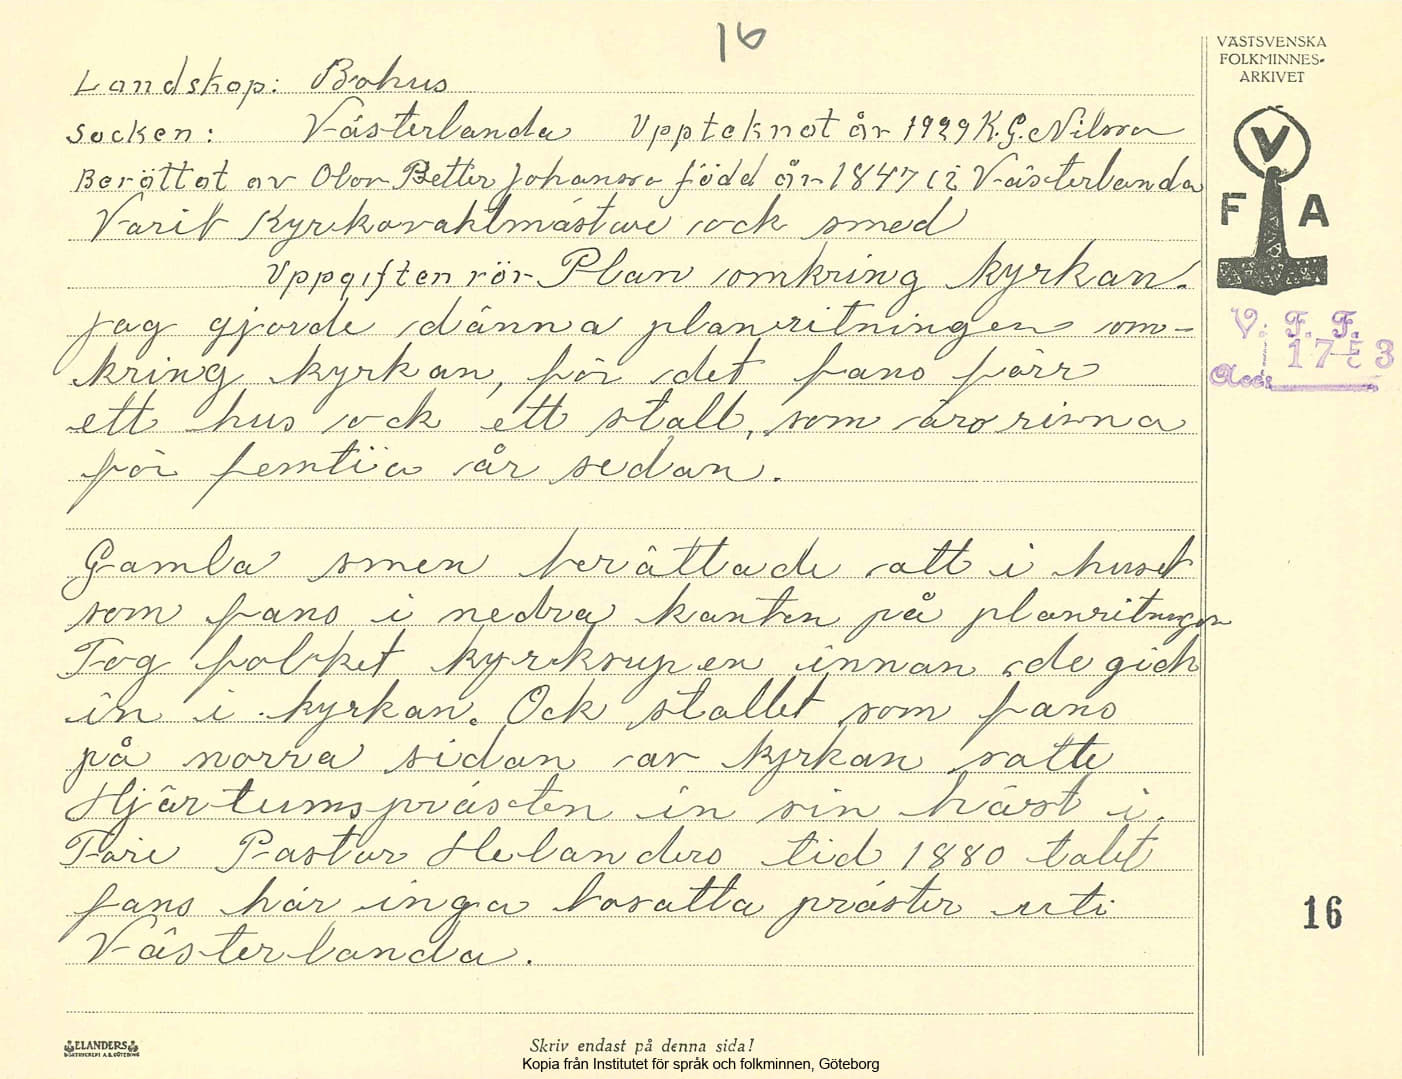 16
VÄSTSVENSKA
FOLKMINNES-
ARKIVET
V
F A
V. F. F.
Acc: 1753
Landskap: Bohus
Socken: Västerlanda Upptecknat år 1929 K. G. Nilsson
Berättat av Olov Petter Johansson född år 1847 i Västerlanda
Varit Kyrkovaktmästare ock smed
Uppgiften rör Plan omkring kyrkan.
Jag gjorde dänna planritningen om-
kring kyrkan, för det fans förr
ett hus ock ett stall, som äro rivna
för femtia år sedan.
Gamla smen berättade att i huset
som fans i nedra kanten på planritningen
Tog folket kyrksupen innan de gick
in i kyrkan. Ock stallet som fans
på norra sidan av kyrkan satte
Hjärtumsprästen in sin häst i.
Före Pastor Helanders tid 1880 talet
fans här inga bosatta präster uti
Västerlanda.
16
ELANDERS
BOKTRYCKERI A.B. GÖTEBORG
Skriv endast på denna sida!
Kopia från Institutet för språk och folkminnen, Göteborg